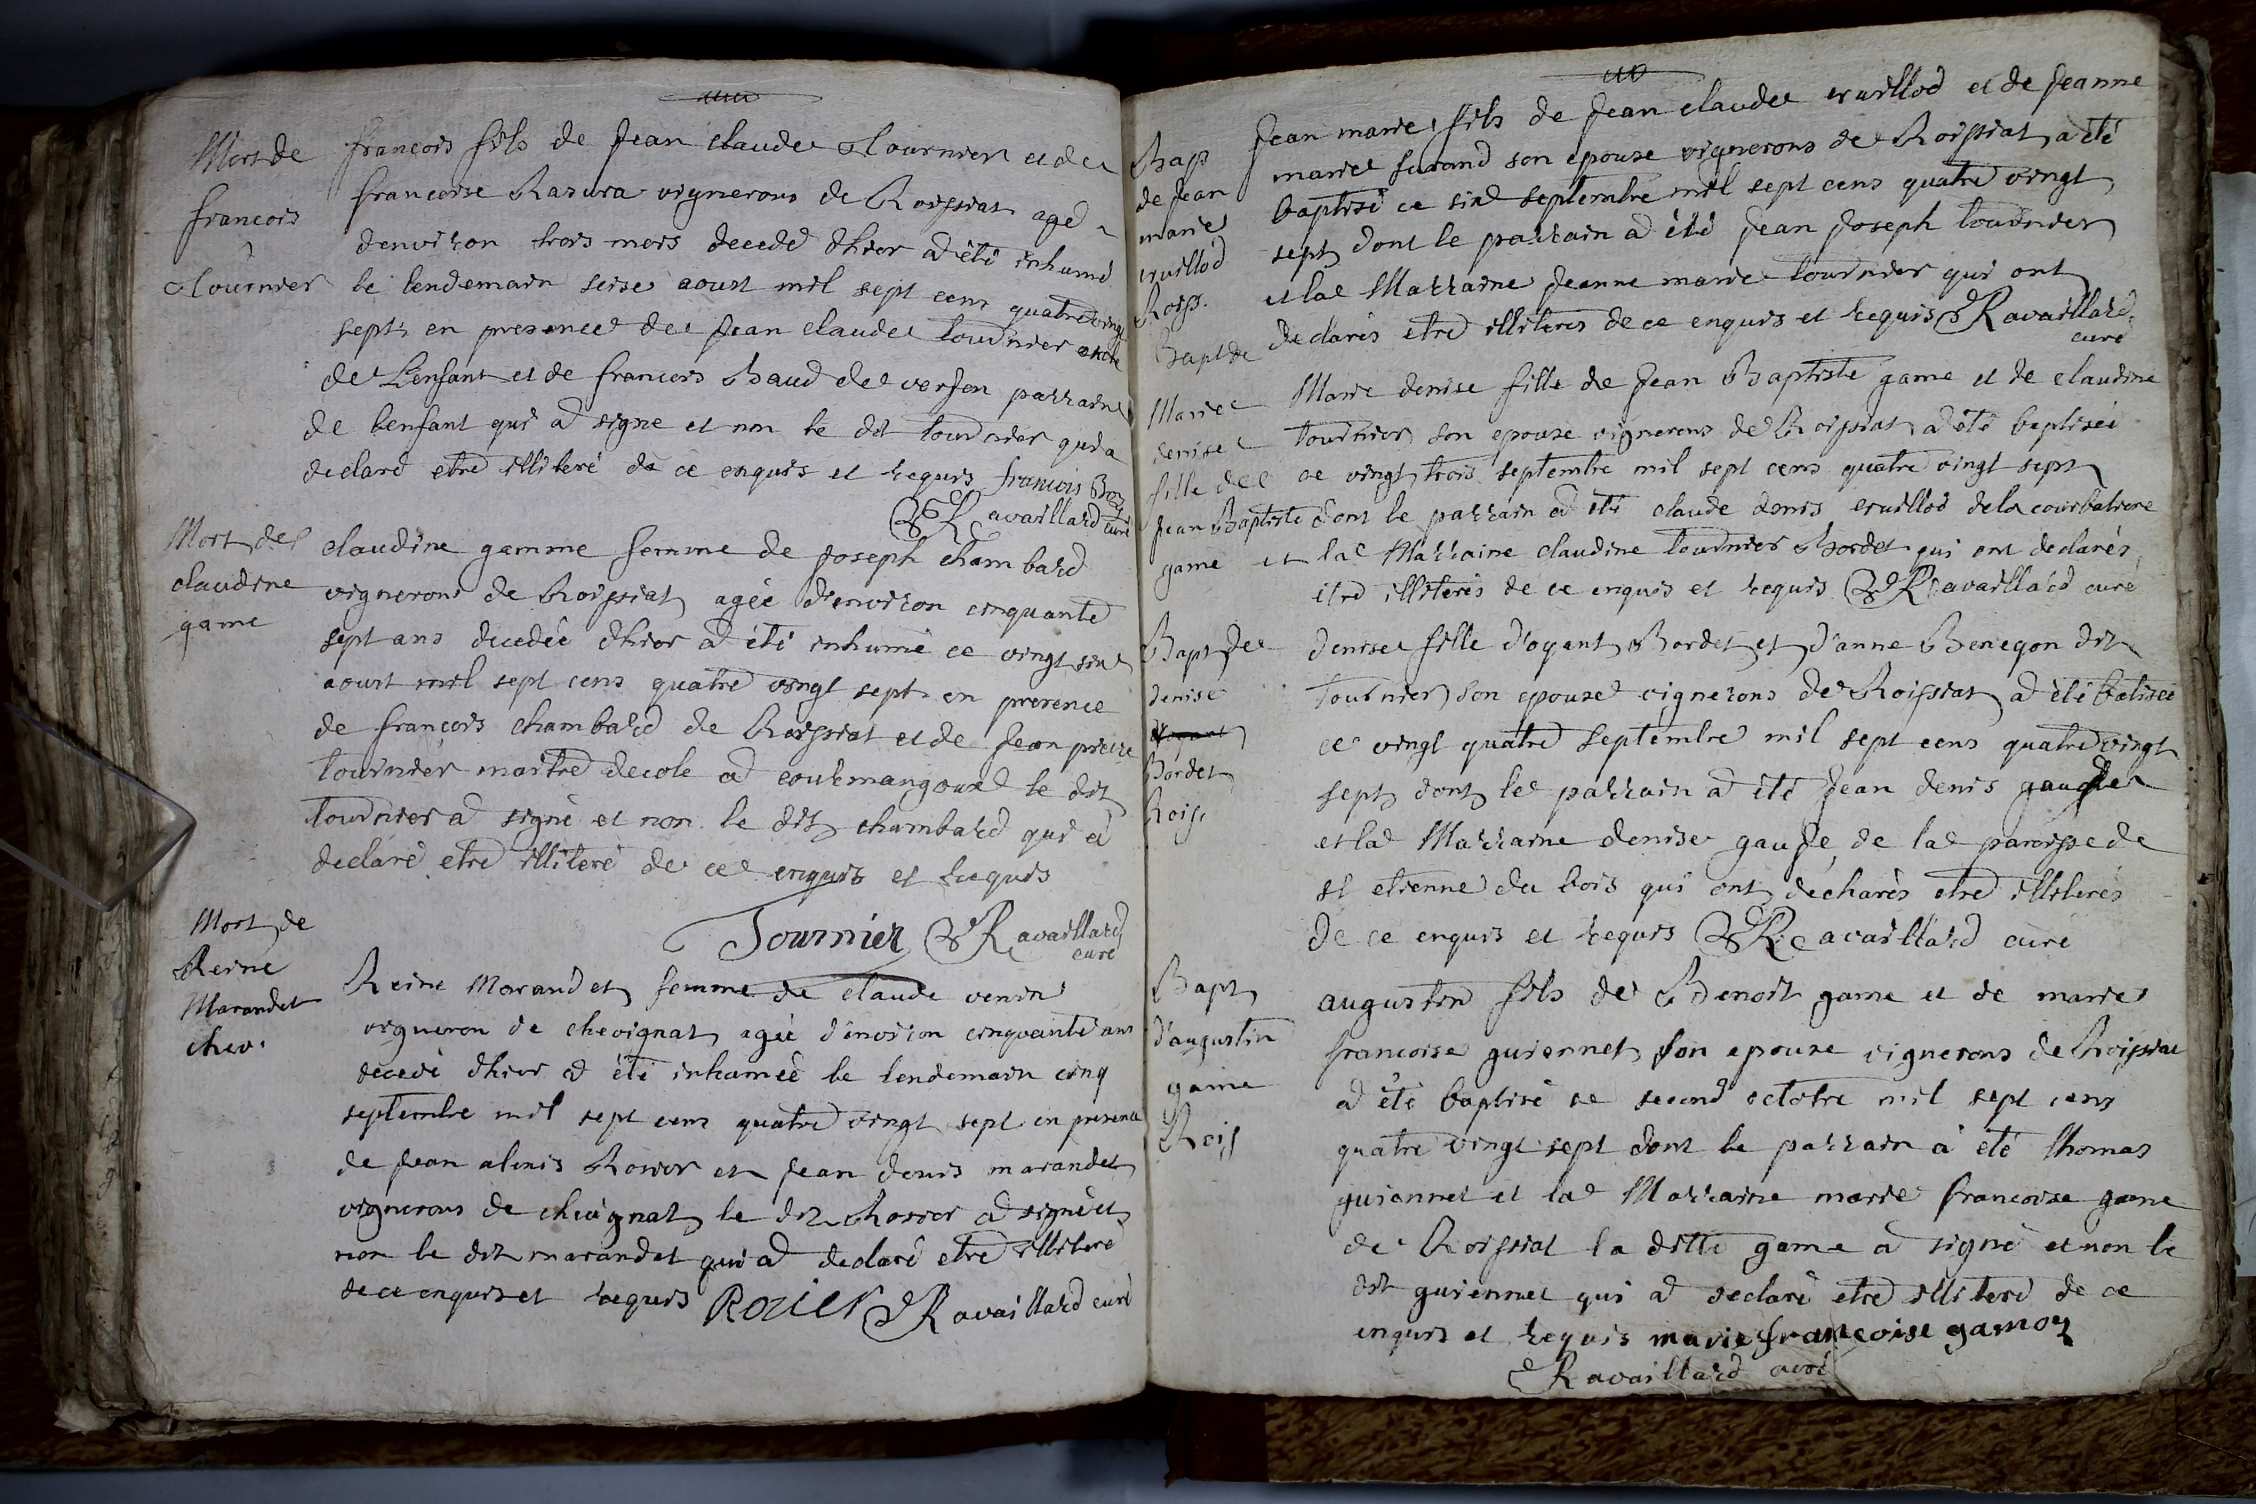 Mort de
francois
tournier
francois fils de jean claude tournier et de
francoise Rasura vignerons de Roissiat agé
denviron trois mois decedé dhier a été inhumé
le lendemain seise aoust mil sept cens quatre vingt
sept en presence de jean claude tournier
de L'enfant et de francois Baud de verjon parrain
de lenfant qui a signe et non le dit tournier qui a
declaré etre illiteré de ce enquis et requis francois
Ravaillard curé
Mort de
claudine
game
claudine gamme femme de joseph chambard
vignerons de Roissiat agée d'environ cinquante
sept ans decedée dhier a été inhumé ce vingt six
aoust mil sept cens quatre vingt sept en presence
de francois chambard de Roissiat et de jean pierre
tournier maitre decole a courmangoux le dit
tournier a signé et non le dit chambard qui a
declaré etre illiteré de ce enquis et requis
Tournier Ravaillard
curé
Mort de
Reine
Marandet
chev.
Reine Morandet femme de claude venin
vigneron de chevignat agée d'environ cinquante ans
decedé dhier a été inhumée le lendemain cinq
septembre mil sept cens quatre vingt sept en presence
de jean alexis Rosier et jean denis marandet
vignerons de chevignat le dit Rosier a signé et
non le dit marandet qui a declaré etre illiteré
de ce enquis et requis Rozier Ravaillard curé
Bap
de jean
marie
cruillod
Roiss.
jean marie fils de jean claude cruillod et de jeanne
marie furand son epouse vignerons de Roissiat a été
baptisé ce six septembre mil sept cens quatre vingt
sept dont le parrain a été jean joseph tournier
et la Marraine jeanne marie tournier qui ont
declarés etre illiterés de ce enquis et requis Ravaillard
curé
Bapt de
Marie
denise
fille de
jean Baptiste
game
Marie denise fille de jean Baptiste game et de claudine
tournier son epouse vignerons de Roissiat a été baptisée
ce vingt trois septembre mil sept cens quatre vingt sept
dont le parrain a été claude denis cruillod de la courbatiere
et la Marraine claudine tournier Bordet qui ont declarés
etre illiterés de ce enquis et requis Ravaillard curé
Bapt de
denise
Bordet
Rois.
denise fille d'oyant Bordet et d'anne Benegon dit
tournier son epouse vignerons de Roissiat a été batisée
ce vingt quatre septembre mil sept cens quatre vingt
sept dont le parrain a été jean denis
et la Marraine denise de la paroisse de
st etienne du bois qui ont declarés etre illiterés
de ce enquis et requis Ravaillard curé
Bapt
d'augustin
game
Rois
augustin fils de Benoit game et de marie
francoise guionnet son epouse vignerons de Roissiat
a été baptisé ce second octobre mil sept cens
quatre vingt sept dont le parrain a été thomas
guionnet et la Marraine marie francoise game
de Roissiat la ditte game a signé et non le
dit guionnet qui a declaré etre illiteré de ce
enquis et requis marie francoise gamoz
Ravaillard curé